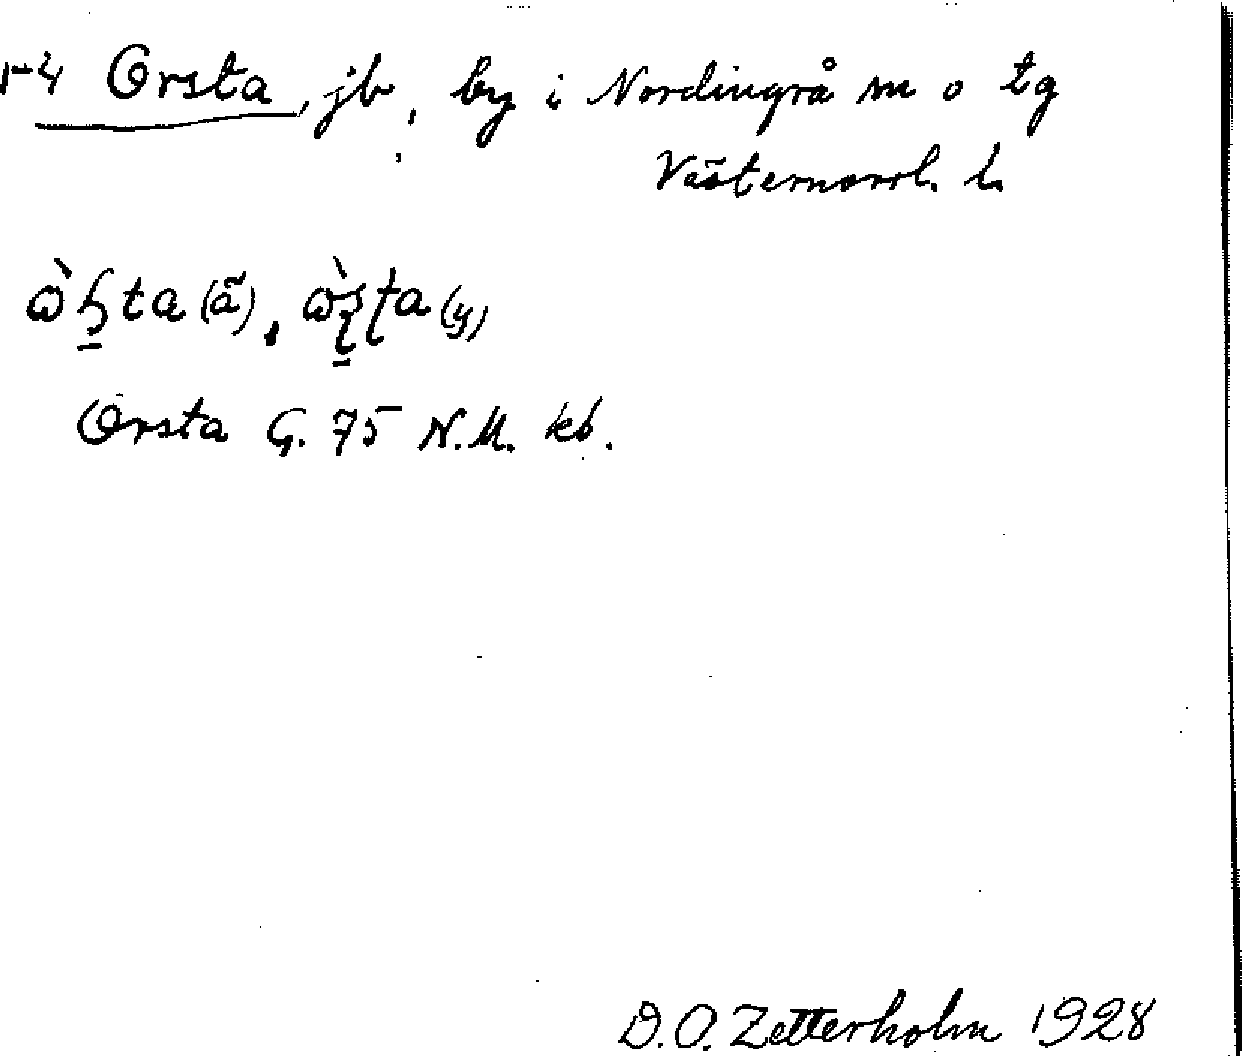 1-4 Orsta, jb, by i Nordingrå m o tg
Västernorrl. l.
Orsta G. 75 N.M. kb.
D.O. Zetterholm 1928